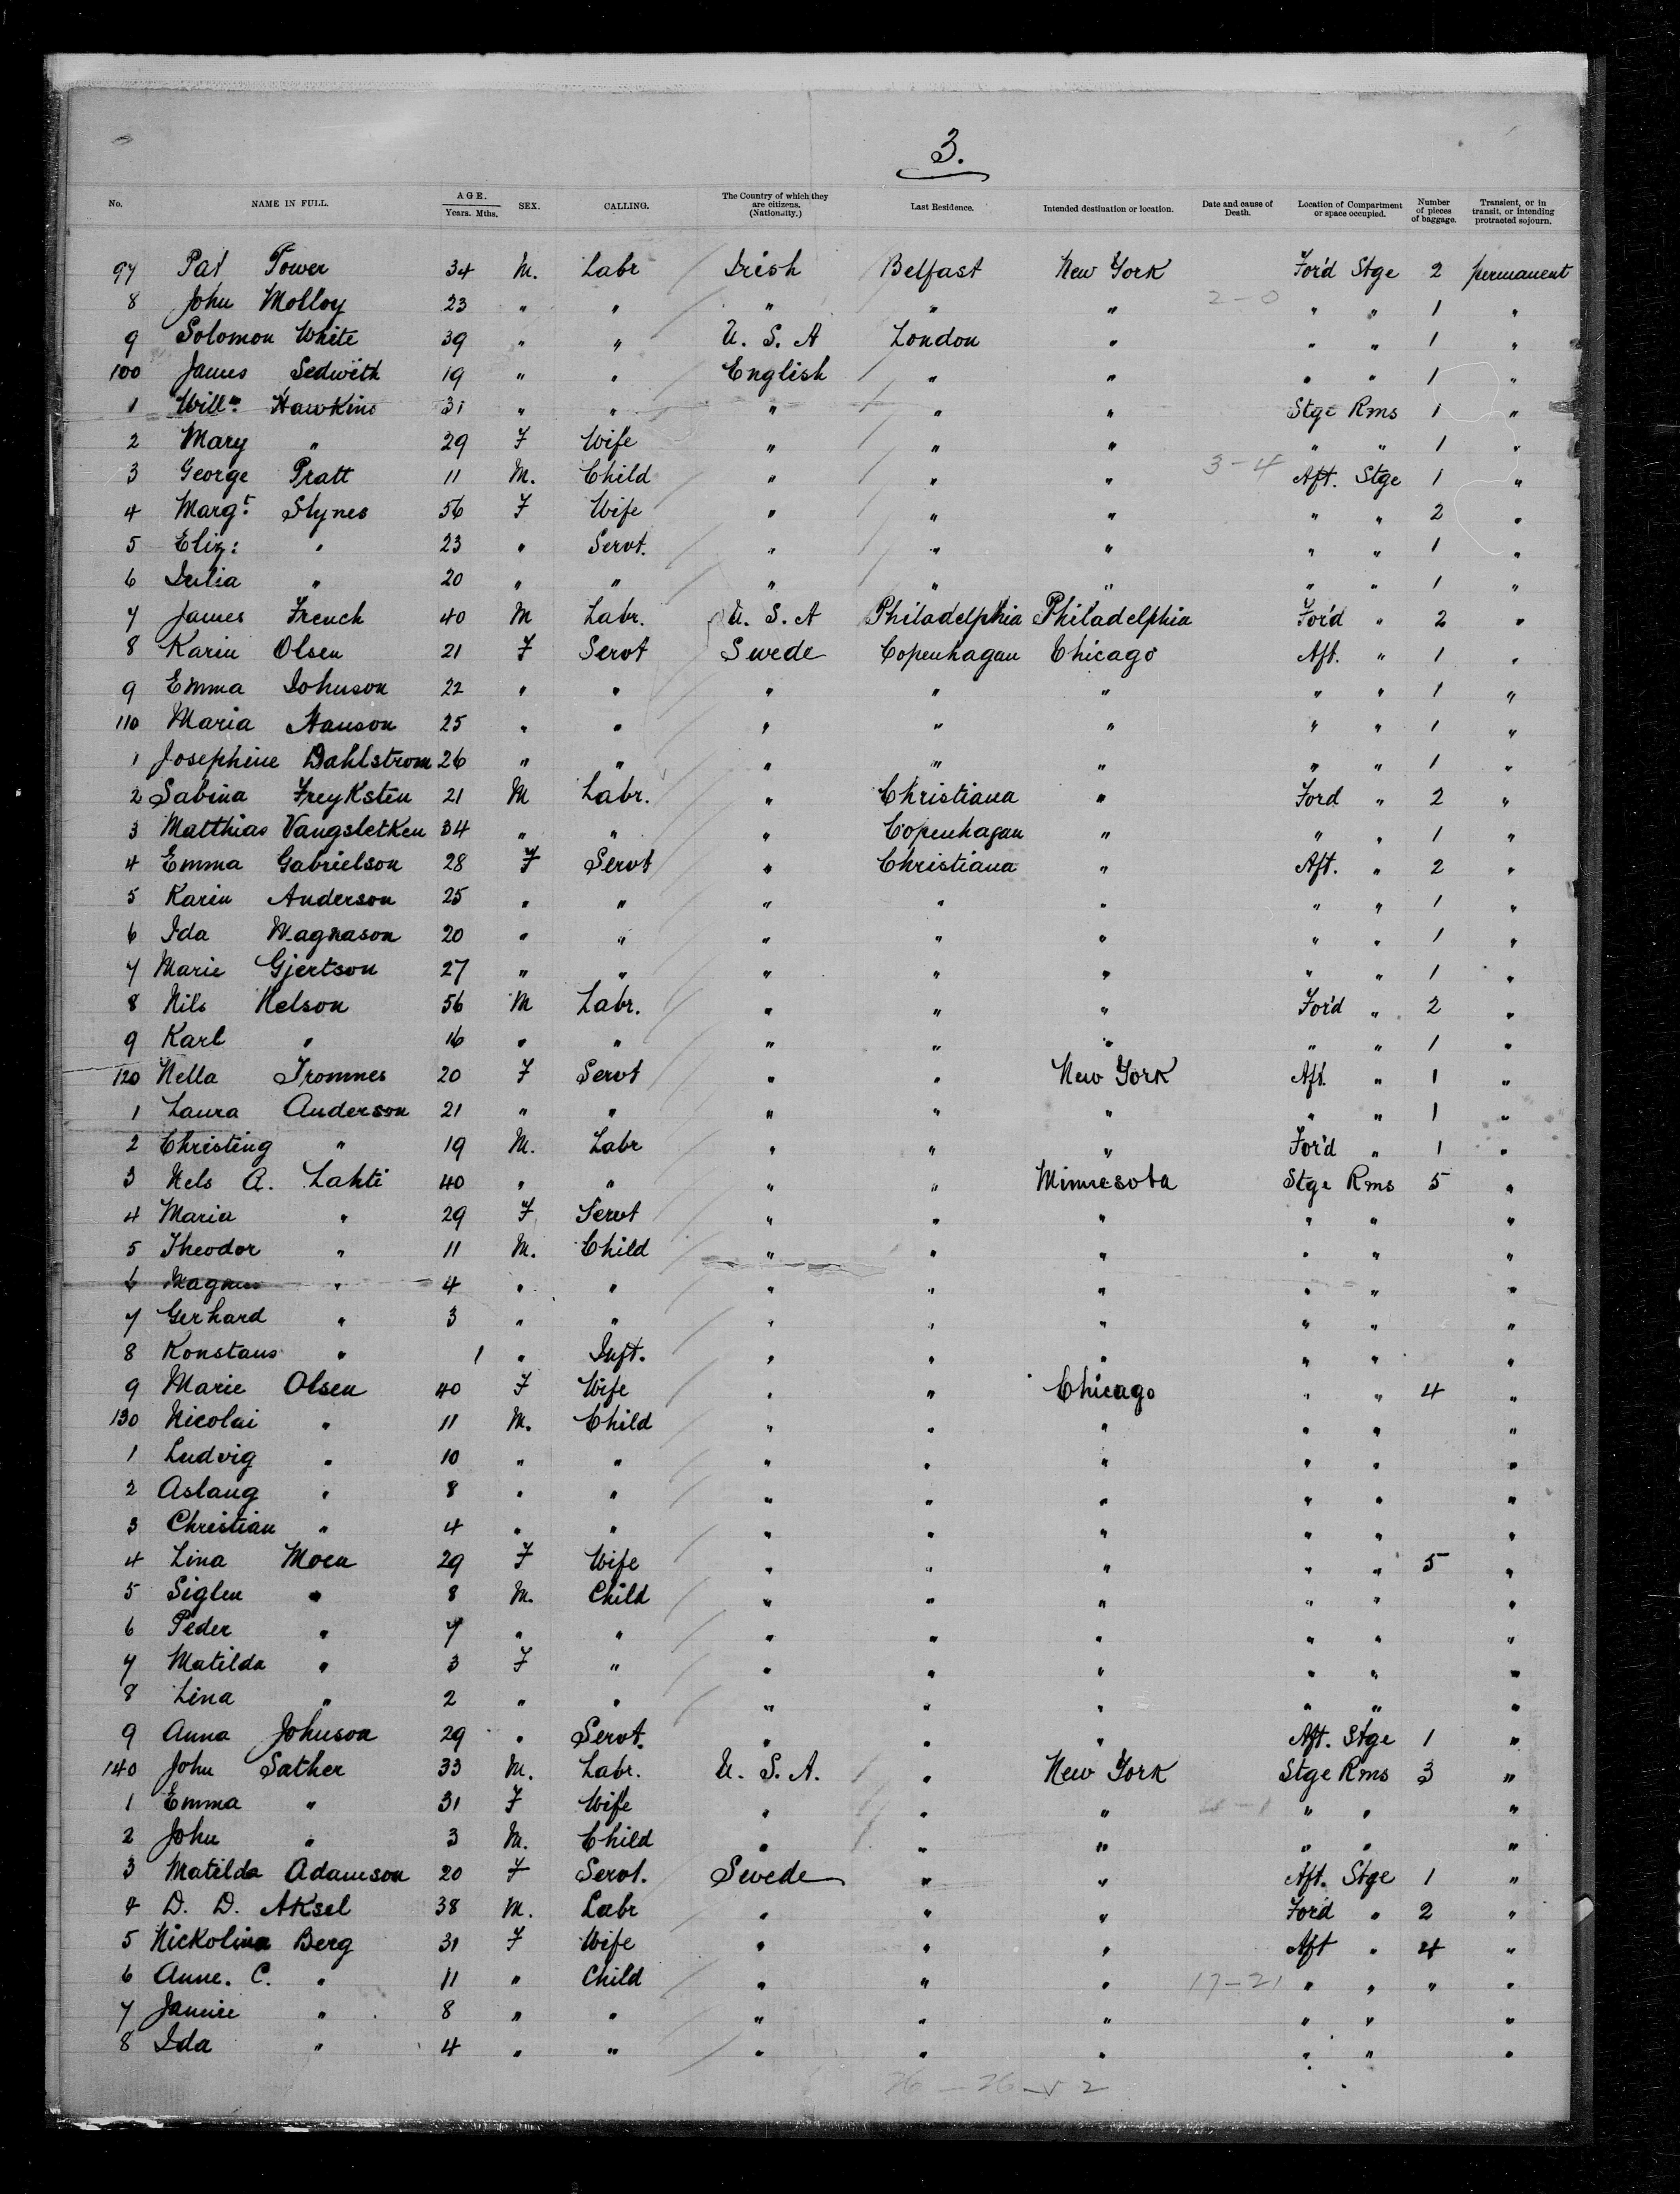 3.
No. NAME IN FULL. AGE. Years. Mths. SEX. CALLING. The Country of which they are citizens. (Nationality.) Last Residence. Intended destination or location. Date and cause of Death. Location of Compartment or space occupied. Number of pieces of baggage. Transient, or in transit, or intending protracted sojourn.
97 Pat Power 34 M. Labr Irish Belfast New York For'd Stge 2 permanent
8 John Molloy 23 " " " " " 2-0 " " 1 "
9 Solomon White 39 " " U. S. A London " " " 1 "
100 James Sedwith 19 " " English " " " " 1 "
1 Willm Hawkins 31 " " " " " Stge Rms 1 "
2 Mary " 29 F Wife " " " " " 1 "
3 George Pratt 11 M. Child " " " 3-4 Aft. Stge 1 "
4 Margt Slynes 56 F Wife " " " " " 2 "
5 Eliz: " 23 " Servt. " " " " " 1 "
6 Julia " 20 " " " " " " " 1 "
7 James French 40 M Labr. U. S. A Philadelphia Philadelphia For'd " 2 "
8 Karin Olsen 21 F Servt Swede Copenhagan Chicago Aft. " 1 "
9 Emma Johnson 22 " " " " " " " 1 "
110 Maria Hanson 25 " " " " " " " 1 "
1 Josephine Dahlstrom 26 " " " " " " " 1 "
2 Sabina Freyksten 21 M Labr. " Christiana " Ford " 2 "
3 Matthias Vangsletken 34 " " " Copenhagan " " " 1 "
4 Emma Gabrielson 28 F Servt " Christiana " Aft. " 2 "
5 Karin Anderson 25 " " " " " " " 1 "
6 Ida Magnason 20 " " " " " " " 1 "
7 Marie Gjertson 27 " " " " " " " 1 "
8 Nils Nelson 56 M Labr. " " " For'd " 2 "
9 Karl " 16 " " " " " " " 1 "
120 Nella Tromnes 20 F Servt " " New York Aft. " 1 "
1 Laura Anderson 21 " " " " " " " 1 "
2 Christing " 19 M. Labr " " " For'd " 1 "
3 Nels A. Lahti 40 " " " " Minnesota Stge Rms 5 "
4 Maria " 29 F Servt " " " " " "
5 Theodor " 11 M. Child " " " " " "
6 Magnus " 4 " " " " " " " "
7 Gerhard " 3 " " " " " " " "
8 Konstans " 1 " Inft. " " " " " "
9 Marie Olsen 40 F Wife " " Chicago " " 4 "
130 Nicolai " 11 M. Child " " " " " "
1 Ludvig " 10 " " " " " " " "
2 Aslaug " 8 " " " " " " " "
3 Christian " 4 " " " " " " " "
4 Lina Moen 29 F Wife " " " " " 5 "
5 Siglen " 8 M. Child " " " " " "
6 Peder " 7 " " " " " " " "
7 Matilda " 3 F " " " " " " "
8 Lina " 2 " " " " " " " "
9 Anna Johnson 29 " Servt. " " " Aft. Stge 1 "
140 John Sather 33 M. Labr. U. S. A. " New York Stge Rms 3 "
1 Emma " 31 F Wife " " " " " "
2 John " 3 M. Child " " " " " "
3 Matilda Adamson 20 F Servt. Swede " " Aft. Stge 1 "
4 D. D. Aksel 38 M. Labr " " " Ford " 2 "
5 Nickolina Berg 31 F Wife " " " Aft " 4 "
6 Anne. C. " 11 " Child " " " 17-21 " " " "
7 " 8 " " " " " " " "
8 Ida " 4 " " " " " " " "